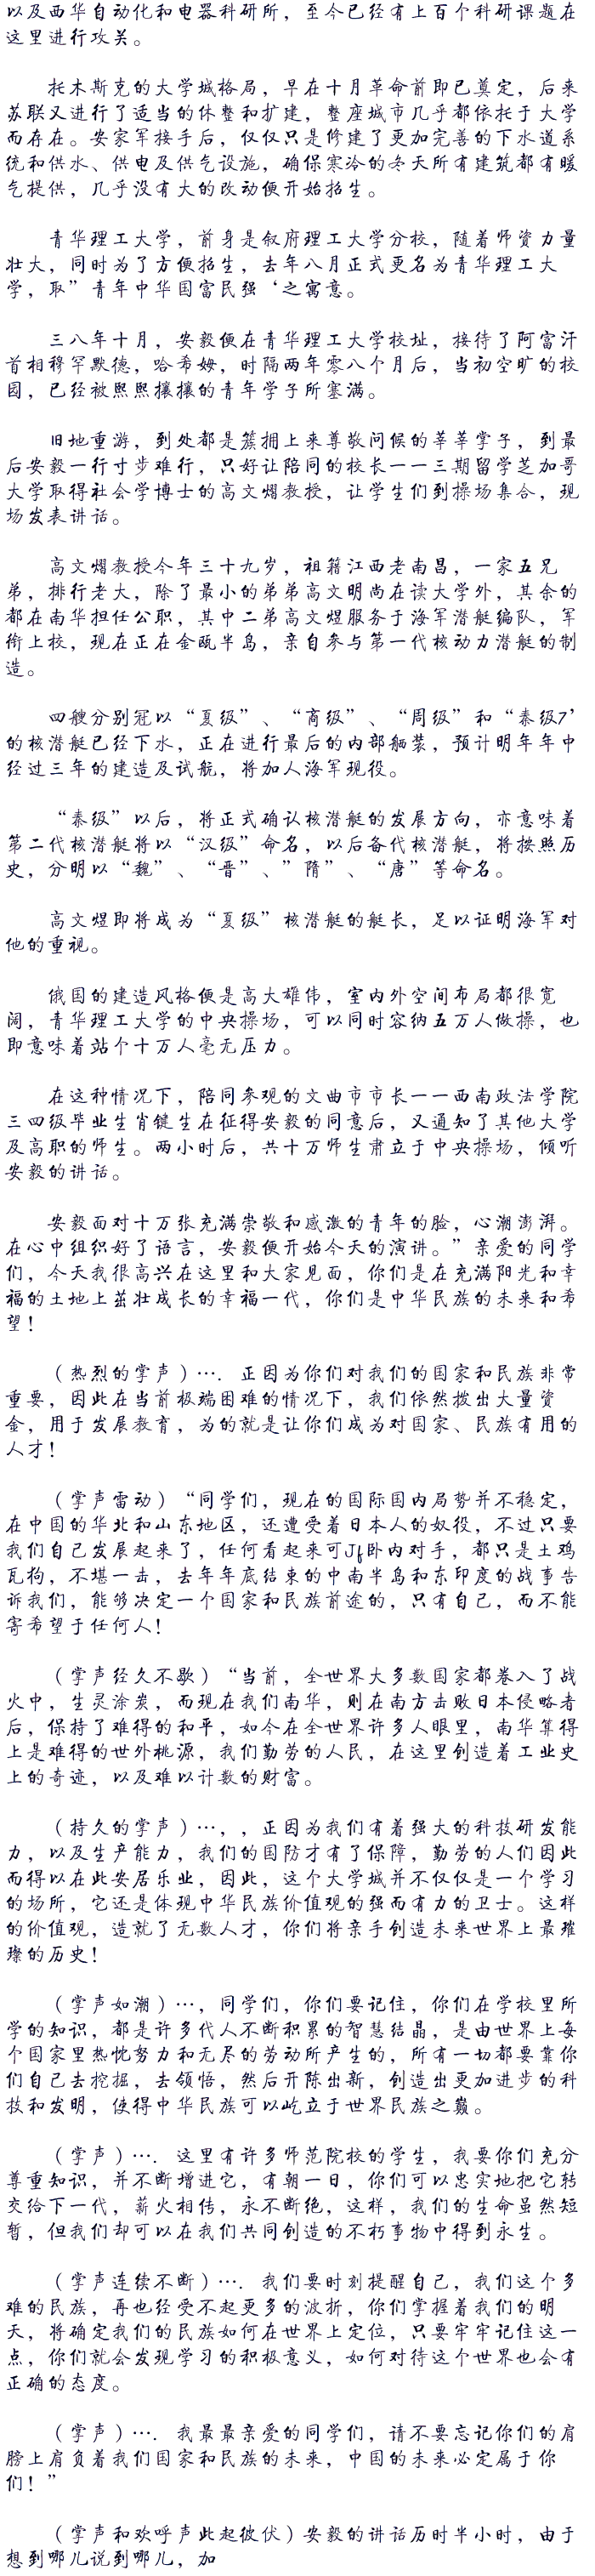 以及西华自动化和电器科研所，至今已经有上百个科研课题在
这里进行攻关。
托木斯克的大学城格局，早在十月革命前即已奠定，后来
苏联又进行了适当的休整和扩建，整座城市几乎都依托于大学
而存在。安家军接手后，仅仅只是修建了更加完善的下水道系
统和供水、供电及供气设施，确保寒冷的冬天所有建筑都有暖
气提供，几乎没有大的改动便开始招生。
青华理工大学，前身是叙府理工大学分校，随着师资力量
壮大，同时为了方便招生，去年八月正式更名为青华理工大
学，取”青年中华国富民强‘之寓意。
三八年十月，安毅便在青华理工大学校址，接待了阿富汗
首相穆罕默德，哈希姆，时隔两年零八个月后，当初空旷的校
园，已经被熙熙攘攘的青年学子所塞满。
旧地重游，到处都是簇拥上来尊敬问候的莘莘掌子，到最
后安毅一行寸步难行，只好让陪同的校长一一三期留学芝加哥
大学取得社会学博士的高文熠教授，让学生们到操场集合，现
场发表讲话。
高文熠教授今年三十九岁，祖籍江西老南昌，一家五兄
弟，排行老大，除了最小的弟弟高文明尚在读大学外，其余的
都在南华担任公职，其中二弟高文煜服务于海军潜艇编队，军
衔上校，现在正在金瓯半岛，亲自参与第一代核动力潜艇的制
造。
四艘分别冠以“夏级”、“商级”、“周级”和“秦级7’
的核潜艇已经下水，正在进行最后的内部舾装，预计明年年中
经过三年的建造及试航，将加人海军现役。
“秦级”以后，将正式确认核潜艇的发展方向，亦意味着
第二代核潜艇将以“汉级”命名，以后备代核潜艇，将按照历
史，分明以“魏”、“晋”、”隋”、“唐”等命名。
高文煜即将成为“夏级”核潜艇的艇长，足以证明海军对
他的重视。
俄国的建造风格便是高大雄伟，室内外空间布局都很宽
阔，青华理工大学的中央操场，可以同时容纳五万人做操，也
即意味着站个十万人毫无压力。
在这种情况下，陪同参观的文曲市市长一一西南政法学院
三四级毕业生肖键生在征得安毅的同意后，又通知了其他大学
及高职的师生。两小时后，共十万师生肃立于中央操场，倾听
安毅的讲话。
安毅面对十万张充满崇敬和感激的青年的脸，心潮澎湃。
在心中组织好了语言，安毅便开始今天的演讲。”亲爱的同学
们，今天我很高兴在这里和大家见面，你们是在充满阳光和幸
福的土地上茁壮成长的幸福一代，你们是中华民族的未来和希
望！
（热烈的掌声）…．正因为你们对我们的国家和民族非常
重要，因此在当前极端困难的情况下，我们依然拨出大量资
金，用于发展教育，为的就是让你们成为对国家、民族有用的
人才！
（掌声雷动）“同学们，现在的国际国内局势并不稳定，
在中国的华北和山东地区，还遭受着日本人的奴役，不过只要
我们自己发展起来了，任何看起来可Jf卧内对手，都只是土鸡
瓦狗，不堪一击，去年年底结束的中南半岛和东印度的战事告
诉我们，能够决定一个国家和民族前途的，只有自己，而不能
寄希望于任何人！
（掌声经久不歇）“当前，全世界大多数国家都卷入了战
火中，生灵涂炭，而现在我们南华，则在南方击败日本侵略者
后，保持了难得的和平，如今在全世界许多人眼里，南华算得
上是难得的世外桃源，我们勤劳的人民，在这里创造着工业史
上的奇迹，以及难以计数的财富。
（持久的掌声）…，，正因为我们有着强大的科技研发能
力，以及生产能力，我们的国防才有了保障，勤劳的人们因此
而得以在此安居乐业，因此，这个大学城并不仅仅是一个学习
的场所，它还是体现中华民族价值观的强而有力的卫士。这样
的价值观，造就了无数人才，你们将亲手创造未来世界上最璀
璨的历史！
（掌声如潮）…，同学们，你们要记住，你们在学校里所
学的知识，都是许多代人不断积累的智慧结晶，是由世界上每
个国家里热忱努力和无尽的劳动所产生的，所有一切都要靠你
们自己去挖掘，去领悟，然后开陈出新，创造出更加进步的科
技和发明，使得中华民族可以屹立于世界民族之巅。
（掌声）…．这里有许多师范院校的学生，我要你们充分
尊重知识，并不断增进它，有朝一日，你们可以忠实地把它转
交给下一代，薪火相传，永不断绝，这样，我们的生命虽然短
暂，但我们却可以在我们共同创造的不朽事物中得到永生。
（掌声连续不断）…．我们要时刻提醒自己，我们这个多
难的民族，再也经受不起更多的波折，你们掌握着我们的明
天，将确定我们的民族如何在世界上定位，只要牢牢记住这一
点，你们就会发现学习的积极意义，如何对待这个世界也会有
正确的态度。
（掌声）…．我最最亲爱的同学们，请不要忘记你们的肩
膀上肩负着我们国家和民族的未来，中国的未来必定属于你
们！”
（掌声和欢呼声此起彼伏）安毅的讲话历时半小时，由于
想到哪儿说到哪儿，加